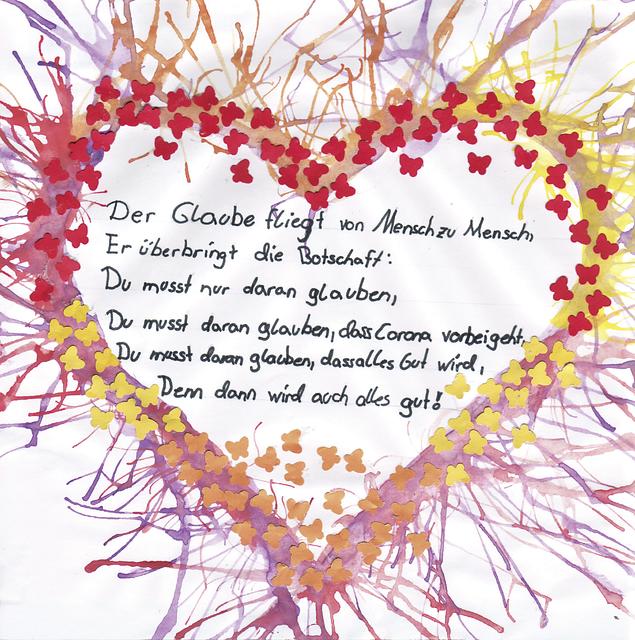 Der Glaube fliegt von Mensch zu Mensch,
Er überbringt die Botschaft:
Du musst nur daran glauben,
Du musst daran glauben, dass Corona vorbeigeht,
Du musst daran glauben, dass alles Gut wird,
Denn dann wird auch alles gut!